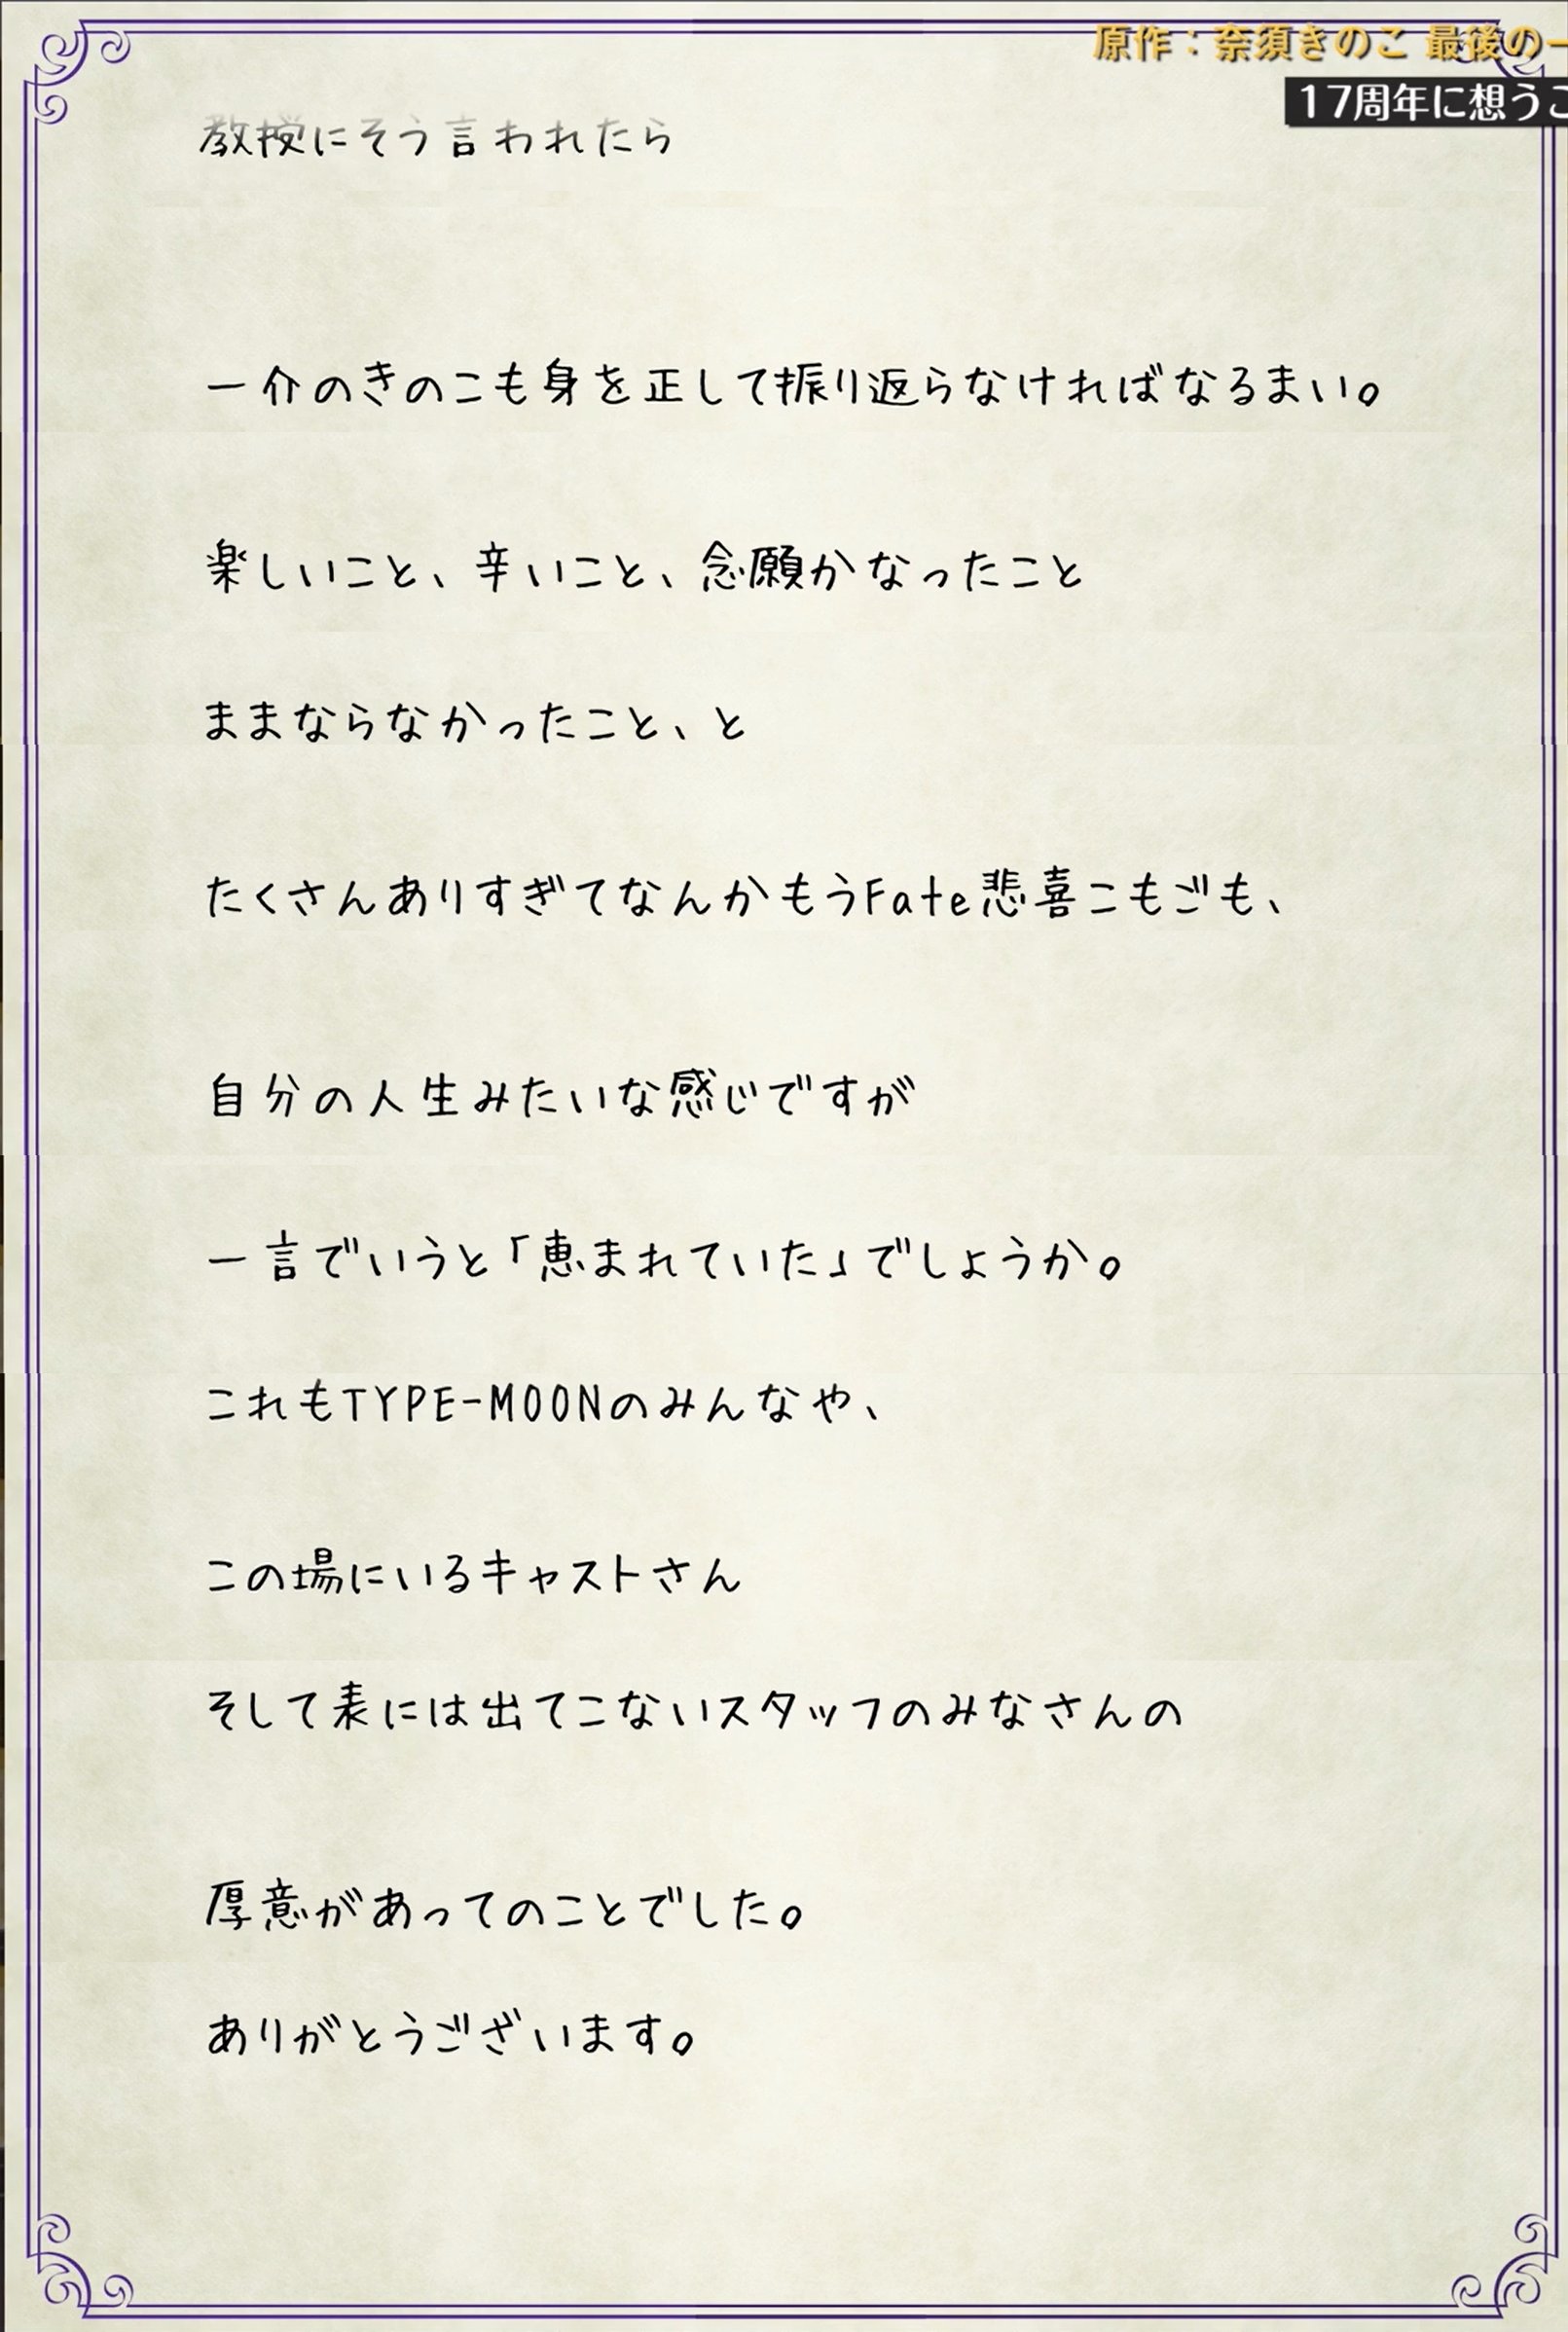 原作：奈須きのこ 最後の
17周年に想う
教授にそう言われたら
一介のきのこも身を正して振り返らなければなるまい。
楽しいこと、辛いこと、念願かなったこと
ままならなかったこと、と
たくさんありすぎてなんかもうFate悲喜こもごも、
自分の人生みたいな感じですが
一言でいうと「恵まれていた」でしょうか。
これもTYPE-MOONのみんなや、
この場にいるキャストさん
そして表には出てこないスタッフのみなさんの
厚意があってのことでした。
ありがとうございます。